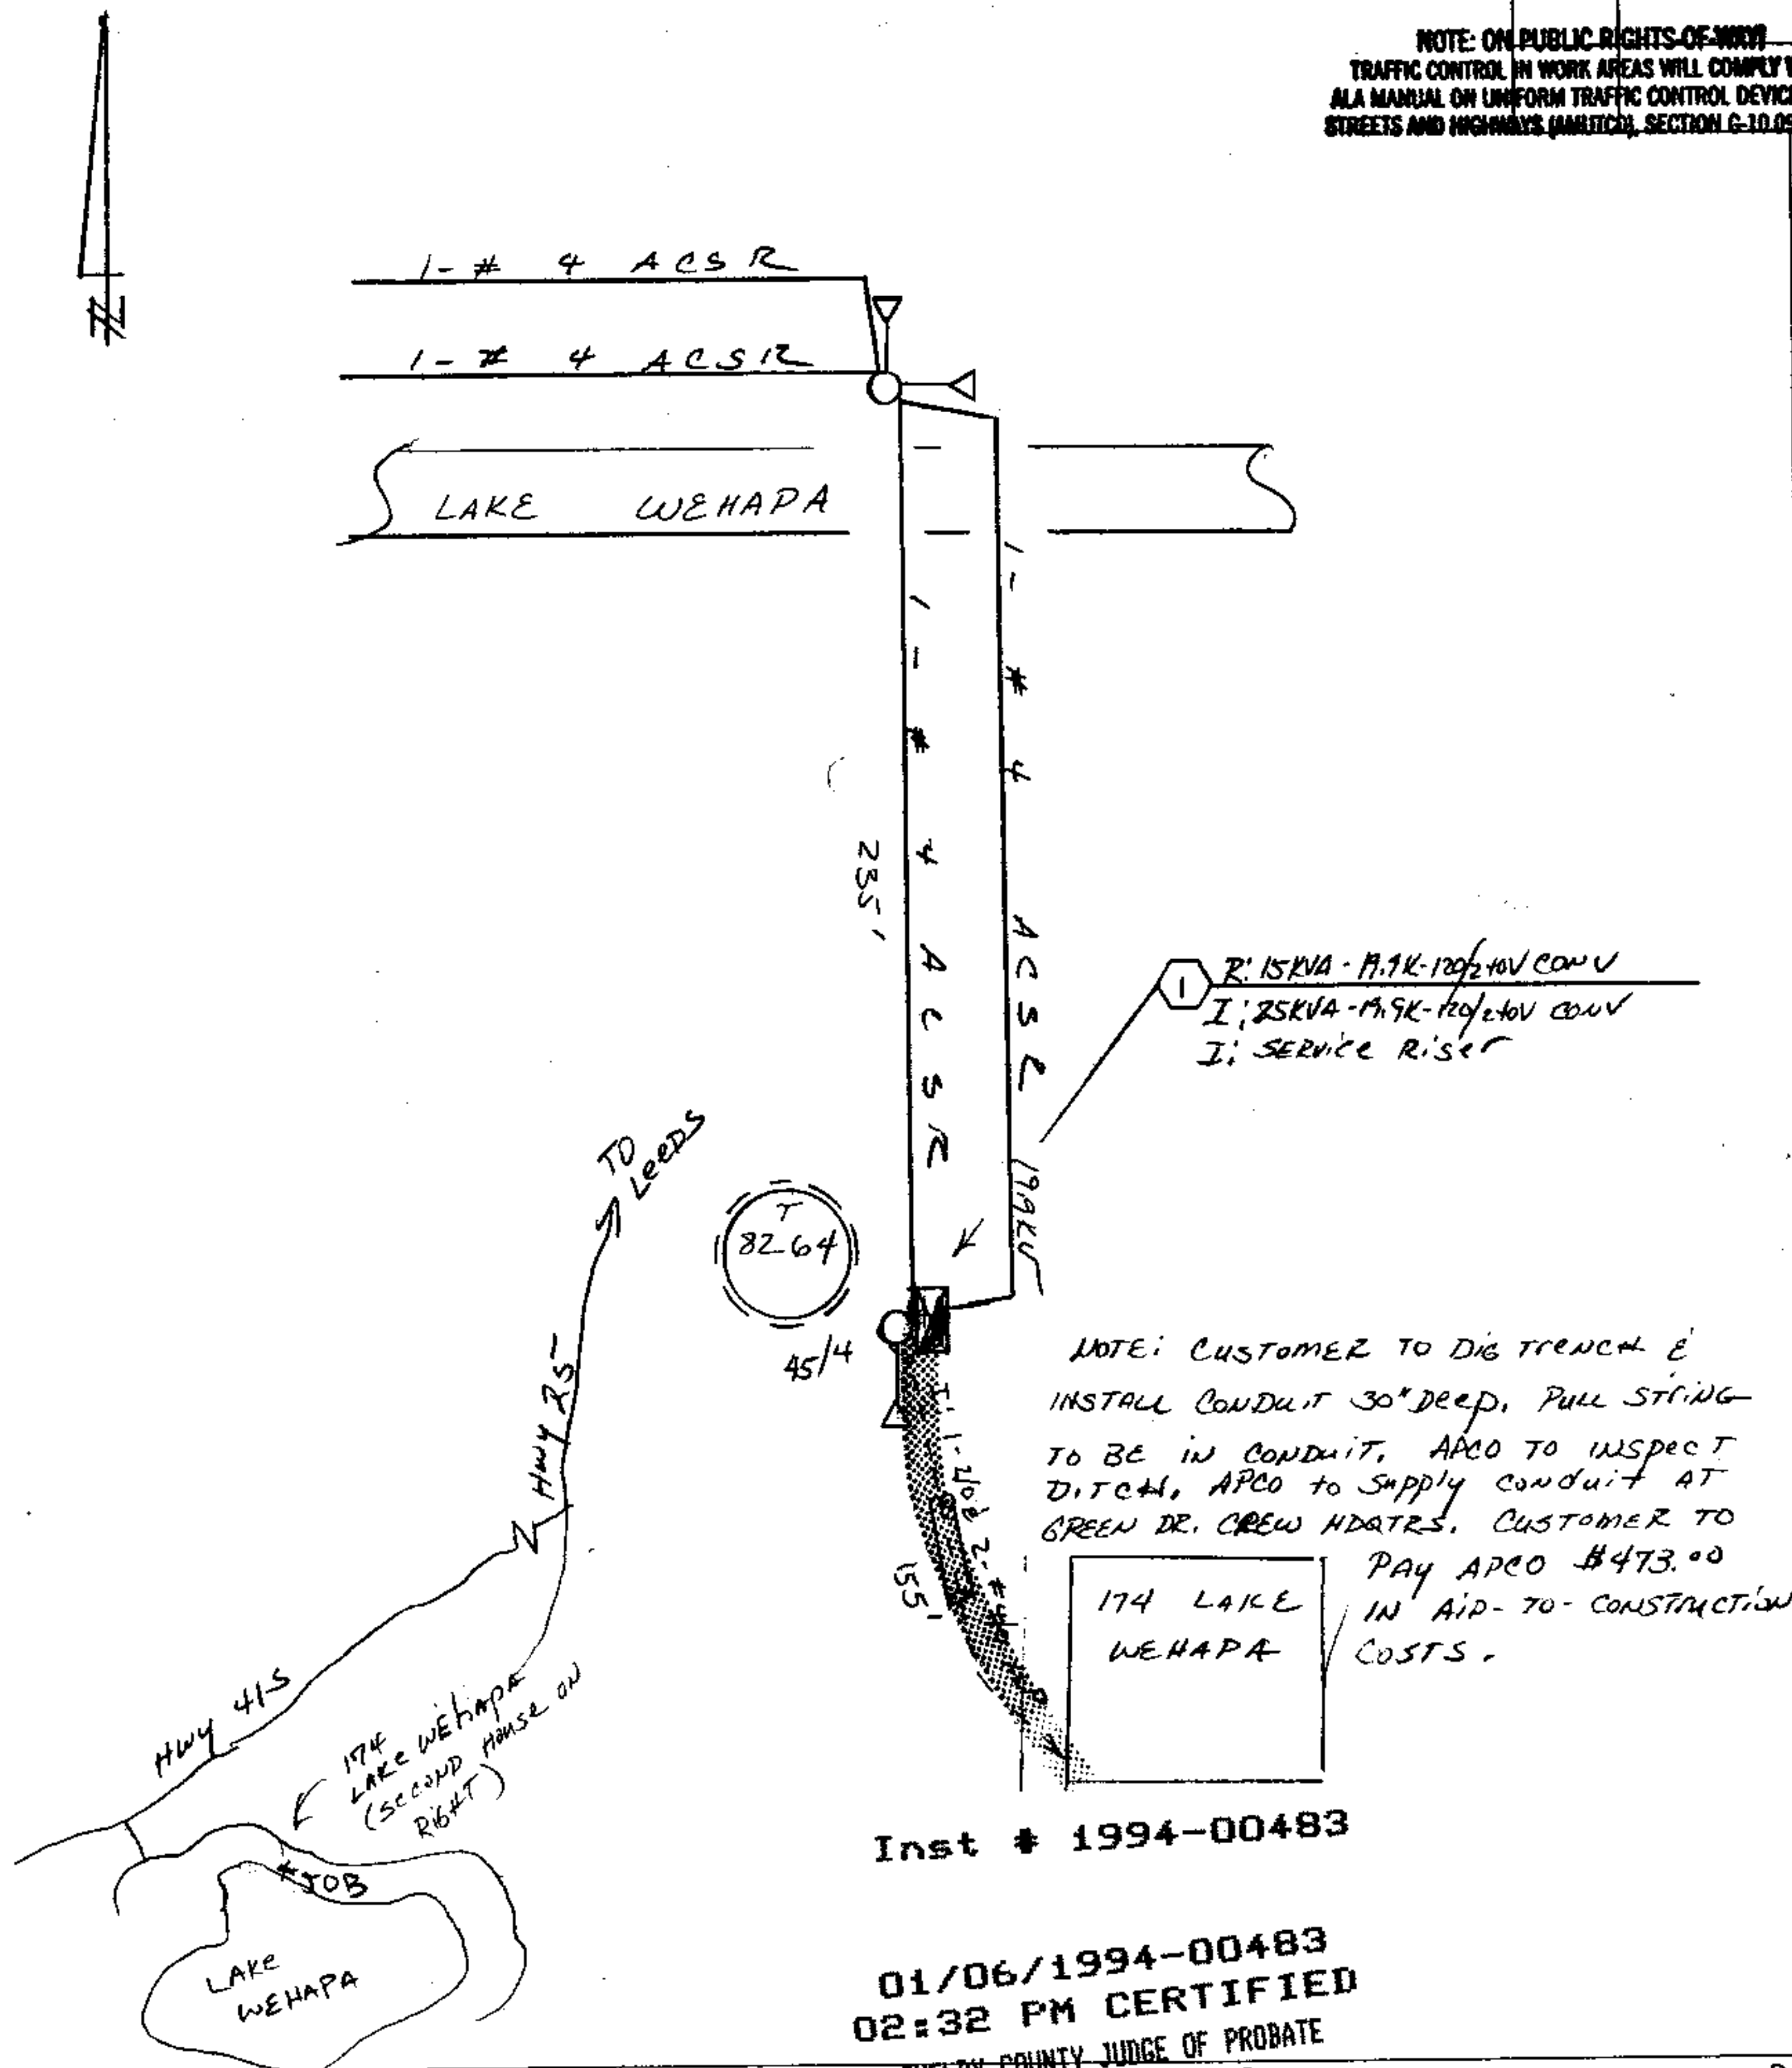 NOTE: ON PUBLIC RIGHTS-OF-WAY
TRAFFIC CONTROL IN WORK AREAS WILL COMPLY
ALA MANUAL ON UNIFORM TRAFFIC CONTROL
STREETS AND HIGHWAYS (AMUTCD), SECTION
N
1-# 4 ACSR
1-# 4 ACSR
LAKE WEHAPA
1-# 4 ACSR
1-# 4 ACSR
235'
19.9KV
1
R: 15KVA-19.9K-120/240V CONV
I: 25KVA-19.9K-120/240V CONV
I: SERVICE RISER
TO
LEEDS
T
8264
45/4
HWY 25
NOTE: CUSTOMER TO DIG TRENCH &
INSTALL CONDUIT 30" DEEP. PULL STRING
TO BE IN CONDUIT. APCO TO INSPECT
DITCH. APCO TO SUPPLY CONDUIT AT
GREEN DR. CREW HDQTRS. CUSTOMER TO
PAY APCO $473.00
IN AID-TO-CONSTRUCTION
COSTS.
155'
174 LAKE
WEHAPA
HWY 41S
174
LAKE WEHAPA
(SECOND HOUSE ON
RIGHT)
JOB
LAKE
WEHAPA
Inst # 1994-00483
01/06/1994-00483
02:32 PM CERTIFIED
COUNTY JUDGE OF PROBATE